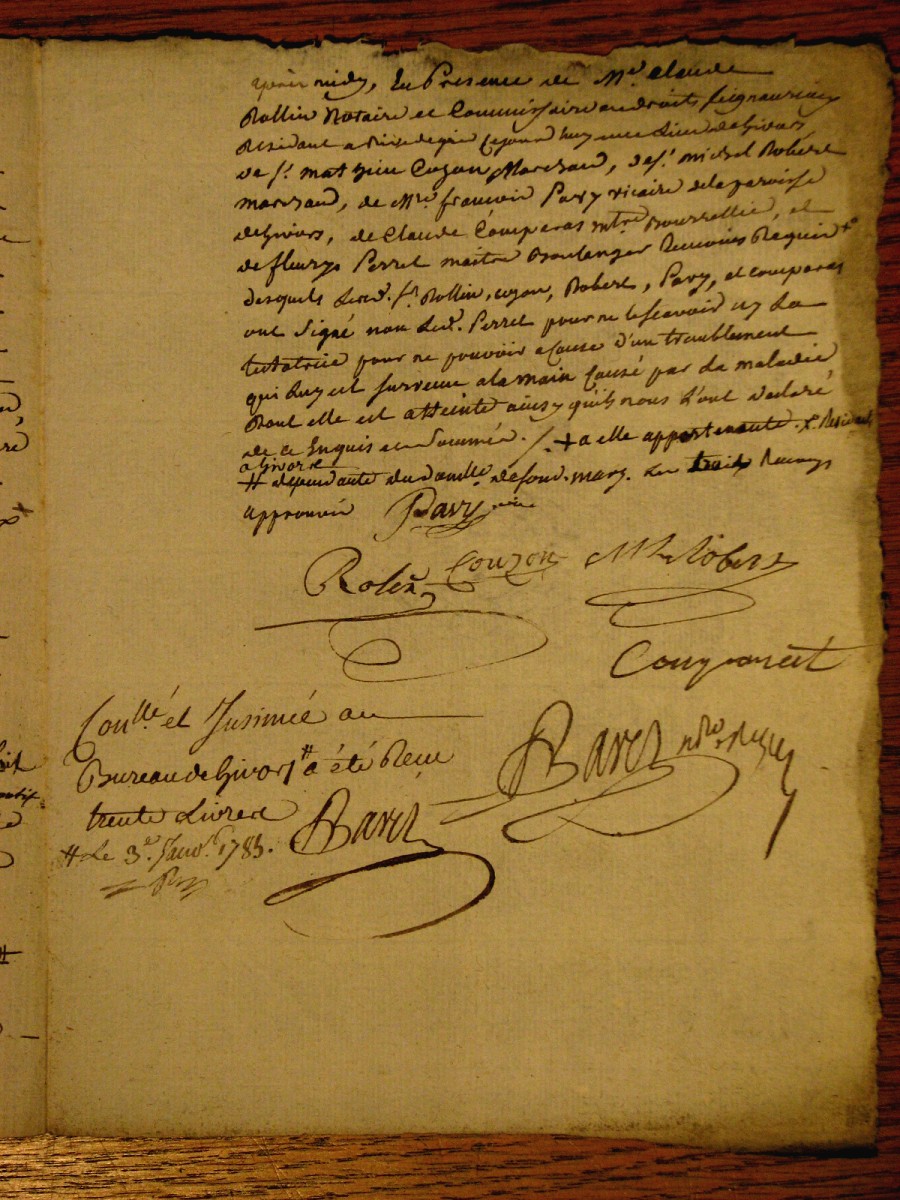 après midy, En Presence de Me. Claude
Rollin Notaire et Commissaire en droits seigneuriaux
Resident a Rivedegier ce jourd'huy en ce Lieu de Givors,
de sr. mathieu Cozon Marchand, de sr. michel Robert
marchand, de Mre. françois Pavy vicaire de la paroisse
de Givors, de Claude Comparat mtre. Bourrellier, et
de fleury Perret maitre Boulanger temoins Requis
desquels Led. sr. Rollin, cozon, Robert, Pavy, et comparat
ont signé non Led. Perret pour ne le scavoir ny La
testatrice pour ne pouvoir a Cause d'un tremblement
qui luy est survenu a la main Causé par La maladie
Dont elle est atteinte ainsy qu'ils nous L'ont declaré
de ce Enquis et sommés. /. + a elle appartenante. x. Resident
a Givors
# dependante du domaine de fond. mary. Les trois Renvoys
approuvés Pavy vic
Rolin Couzon Ml Robert
Comparat
Conllé et Insinué au
Bureau de Givors # a été Reçu
trente Livres
# Le 3e. Janv. 1783.